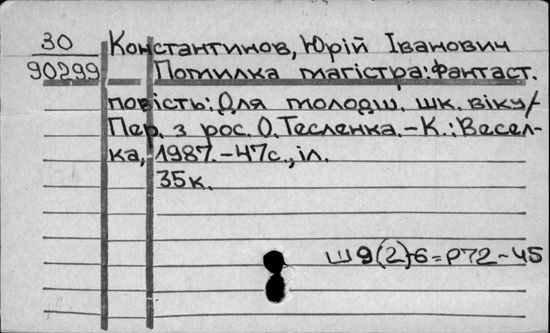 30 Константинов, Юрій Іванович
90299 Помилка магістра: Фантаст.
повість: Для молодш. шк. віку/
Пер. з рос. О. Тесленка. – К.: Весел-
ка, 1987. – 47с., іл.
35к.
Ш9(2)6=Р72-45